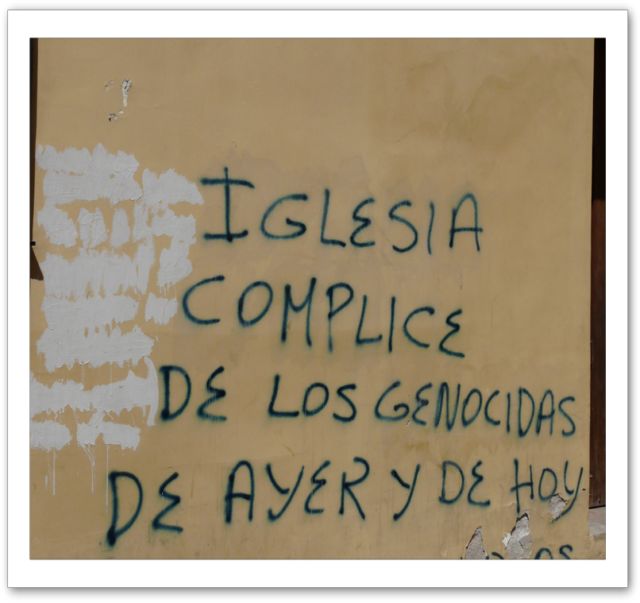 IGLESIA
COMPLICE
DE LOS GENOCIDAS
DE AYER Y DE HOY